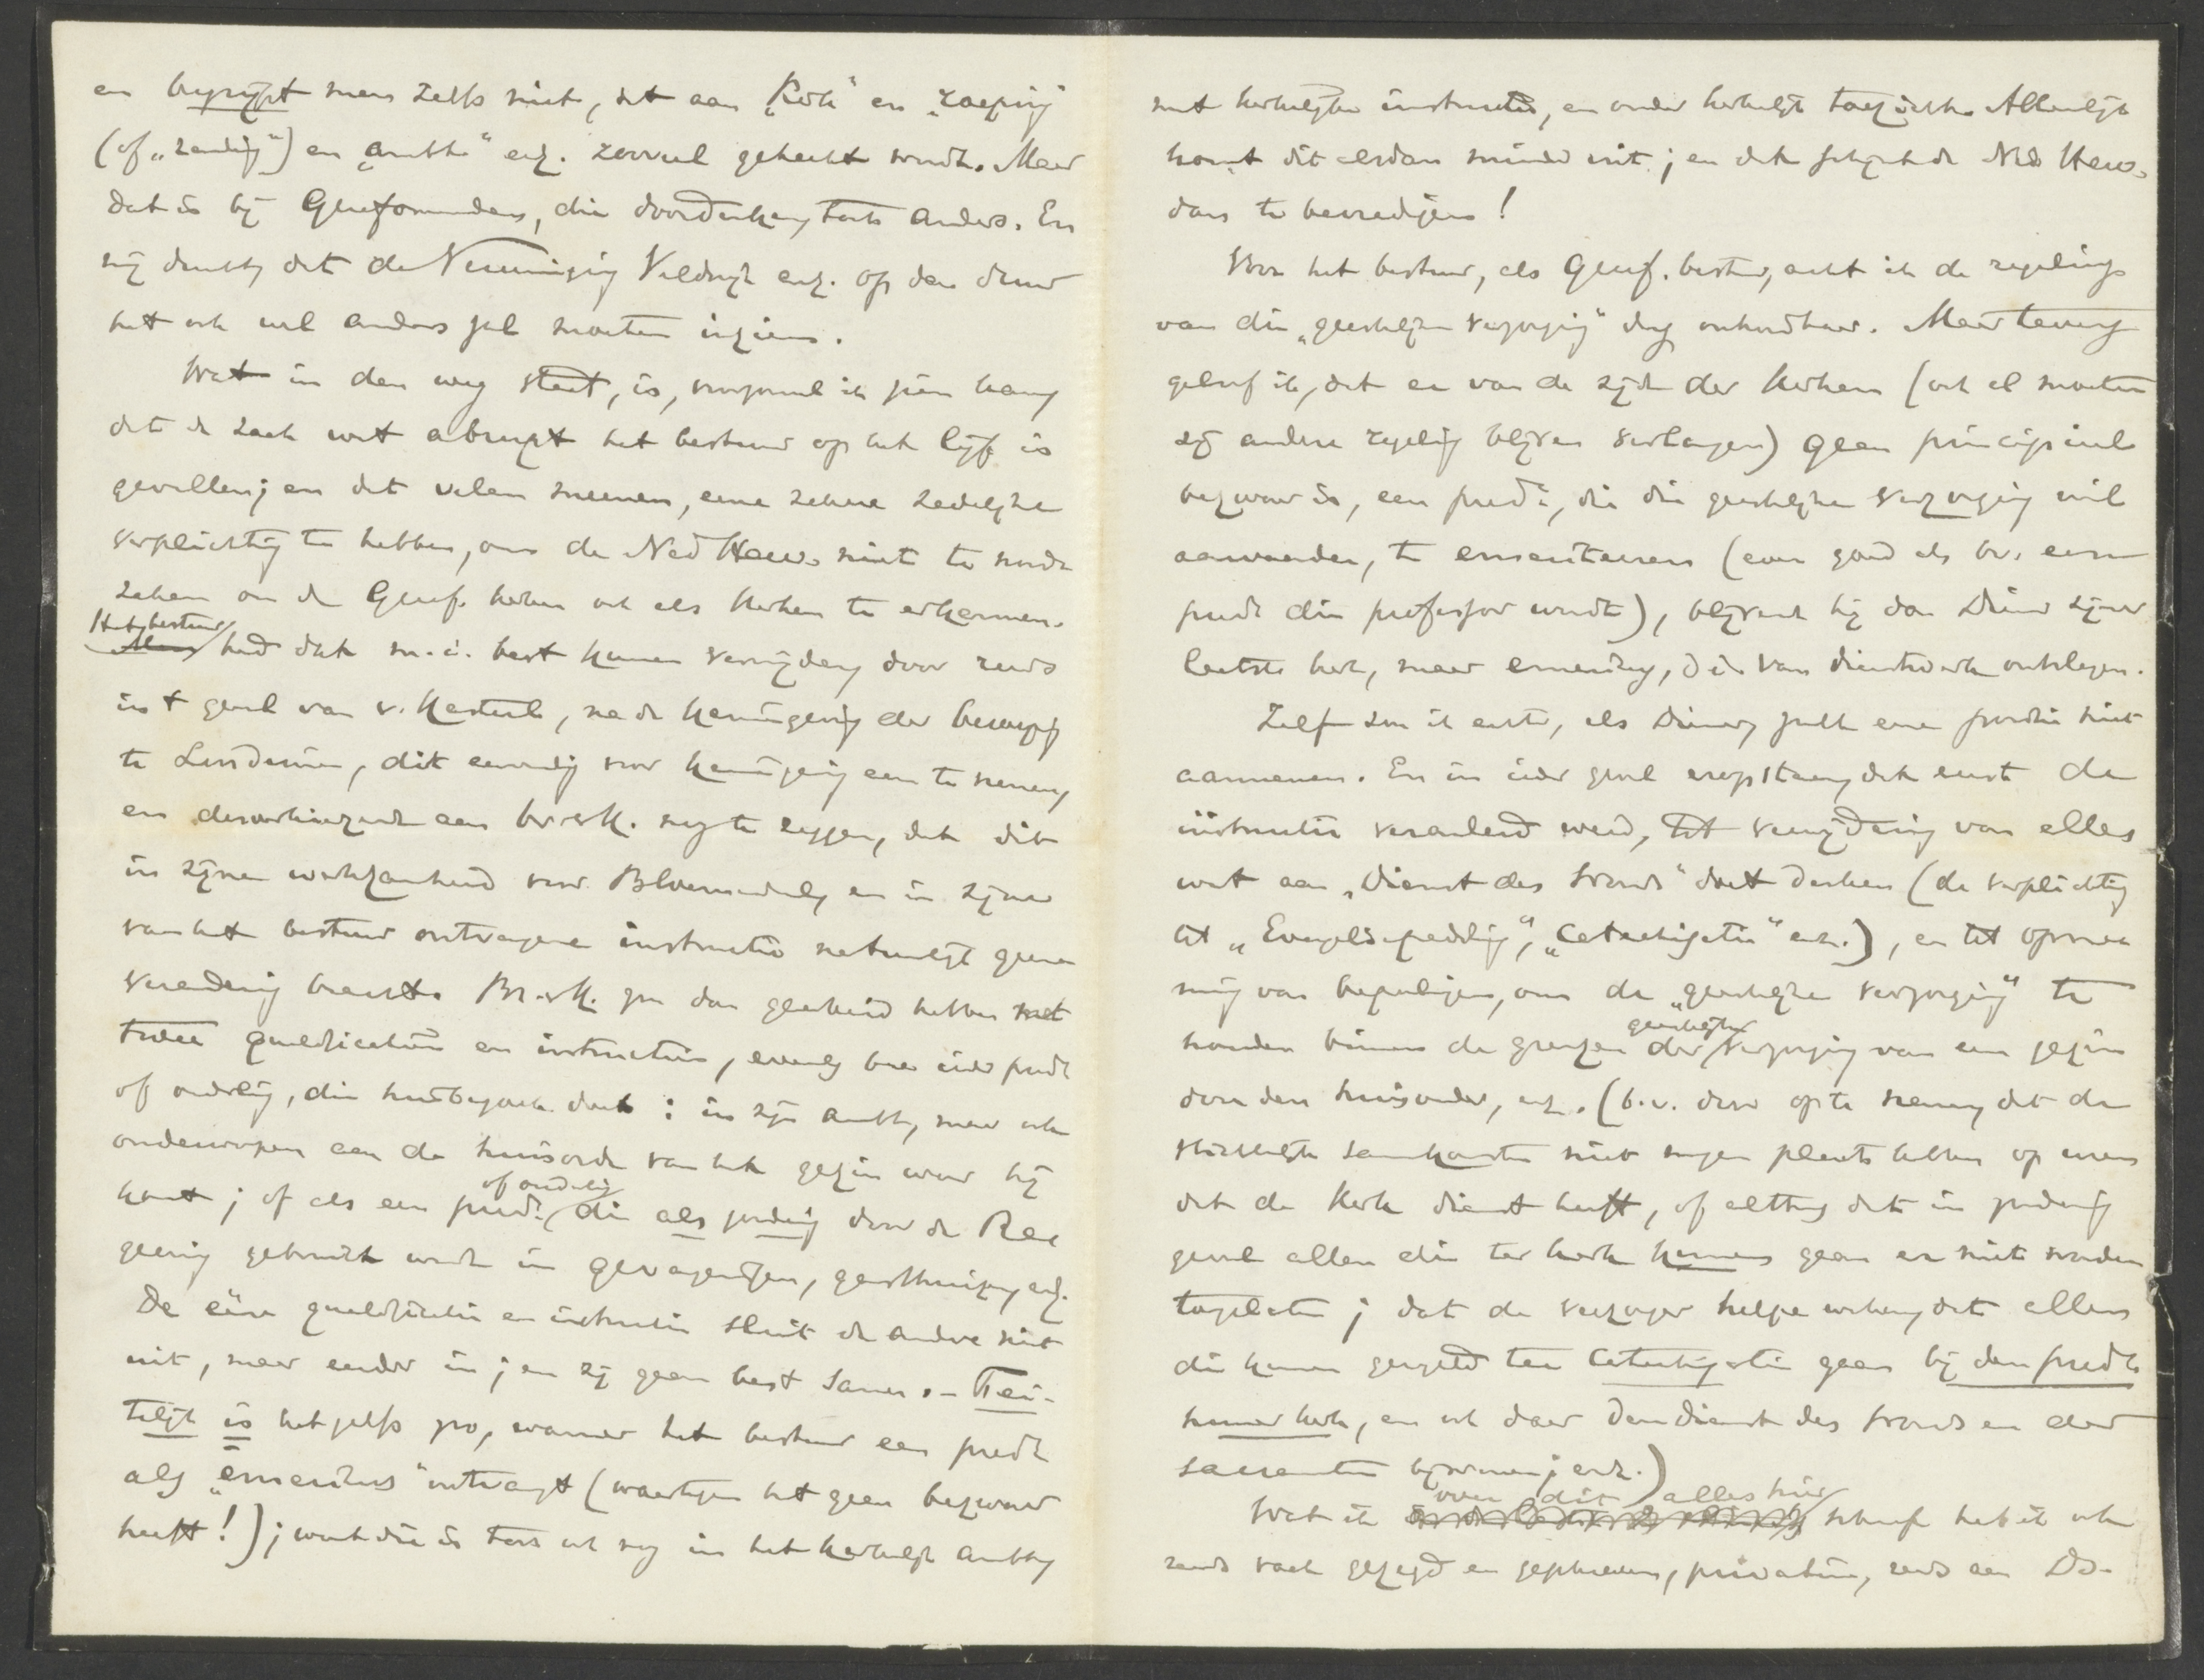 en begrijpt men zelfs niet, dat aan „Kerk" en „roeping"
(of „zending") en „ambt" enz. zooveel gehecht wordt. Maar
dat is bij Gereformeerden, die doordenken, toch anders. En
mij dunkt, dat de Vereeniging Veldwijk enz. op den duur
het ook wel anders zal moeten inzien.
Wat in den weg staat, is, vooral
dat de zaak wat abrupt het bestuur op het lijf is
gevallen; en dat velen meenen, eene zekere zedelijke
verplichting te hebben, om de Ned Herv. niet te
zeken om de Geref. kerken ook als kerken te erkennen.
Het bestuur had dat m.i. best kunnen vermijden, door reeds
in 't geval van v. Kasteel, na de kennisgeving der beroeping
te Lunteren, dit eenvoudig voor kennisgeving aan te nemen,
en aan br. v K. nog te zeggen, dat dit
in zijne werkzaamheid voor Bloemendaal, en in zijne
van het bestuur ontvangene instructie natuurlijk geene
verandering bracht. Br. v K. zou dan gearbeid hebben met
twee qualificatiën en instructiën, evenals bv. ieder predt
of ouderling, die huisbezoek doet: in zijn ambt, maar ook
onderworpen aan de huisorde van het gezin waar hij
komt; of als een predt of ouderling, die als zoodanig door de Re-
geering gebruikt wordt in gevangenissen, gasthuizen, enz.
De eene qualificatie en instructie sluit de andere niet
uit, maar eerder in; en zij gaan best samen. – Fei-
telijk is het zelfs zoo, wanneer het bestuur een predt
als „emeritus" ontvangt (waartegen het geen bezwaar
heeft!); want die is toch ook nog in het kerkelijk ambt,
met kerkelijke instructie, en onder kerkelijk toezicht. Alleenlijk
komt dit alsdan minder uit; en dat schijnt de Ned Herv.
dan te bevredigen!
Voor het bestuur, als Geref. bestuur, acht ik de regeling
van die „geestelijke verzorging" dus onhoudbaar. Maar tevens
geloof ik, dat er van de zijde der Kerken (ook al moeten
zij andere regeling blijven verlangen) geen principieel
bezwaar is, een predt, die die geestelijke verzorging wil
aanvaarden, te emeriteeren (even goed als bv. eenen
predt die professor wordt), blijvend hij dan Dienaar zijner
laatste kerk, maar emeritus, d.i. van dienstwerk ontslagen.
Zelf zou ik echter, als Dienaar, zulk eene positie niet
aannemen. En in ieder geval erop staan, dat eerst de
instructie veranderd werd, tot vermijding van alles
wat aan „Dienst des Woords" doet denken (de verplichting
tot „Evangelieprediking", „Catechisatie" enz.), en tot opne-
ming van bepalingen, om de „geestelijke verzorging" te
houden binnen de grenzen der geestelijke verzorging van een gezin
door den huisvader, enz. (b.v. door op te nemen, dat de
stichtelijke samenkomsten niet mogen plaats hebben op uren
dat de Kerk dienst heeft, of althans dat in zoodanig
geval allen die ter kerk kunnen gaan er niet worden
toegelaten; dat de verzorger helpe werken, dat allen
die kunnen geregeld ter Catechisatie gaan bij den predt
hunner kerk, en ook daar den dienst des Woords en der
sacramenten bijwonen; enz.)
Wat ik over dit alles hier schreef heb ik ook
reeds vaak gezegd en geschreven, privatim, reeds aan Ds.